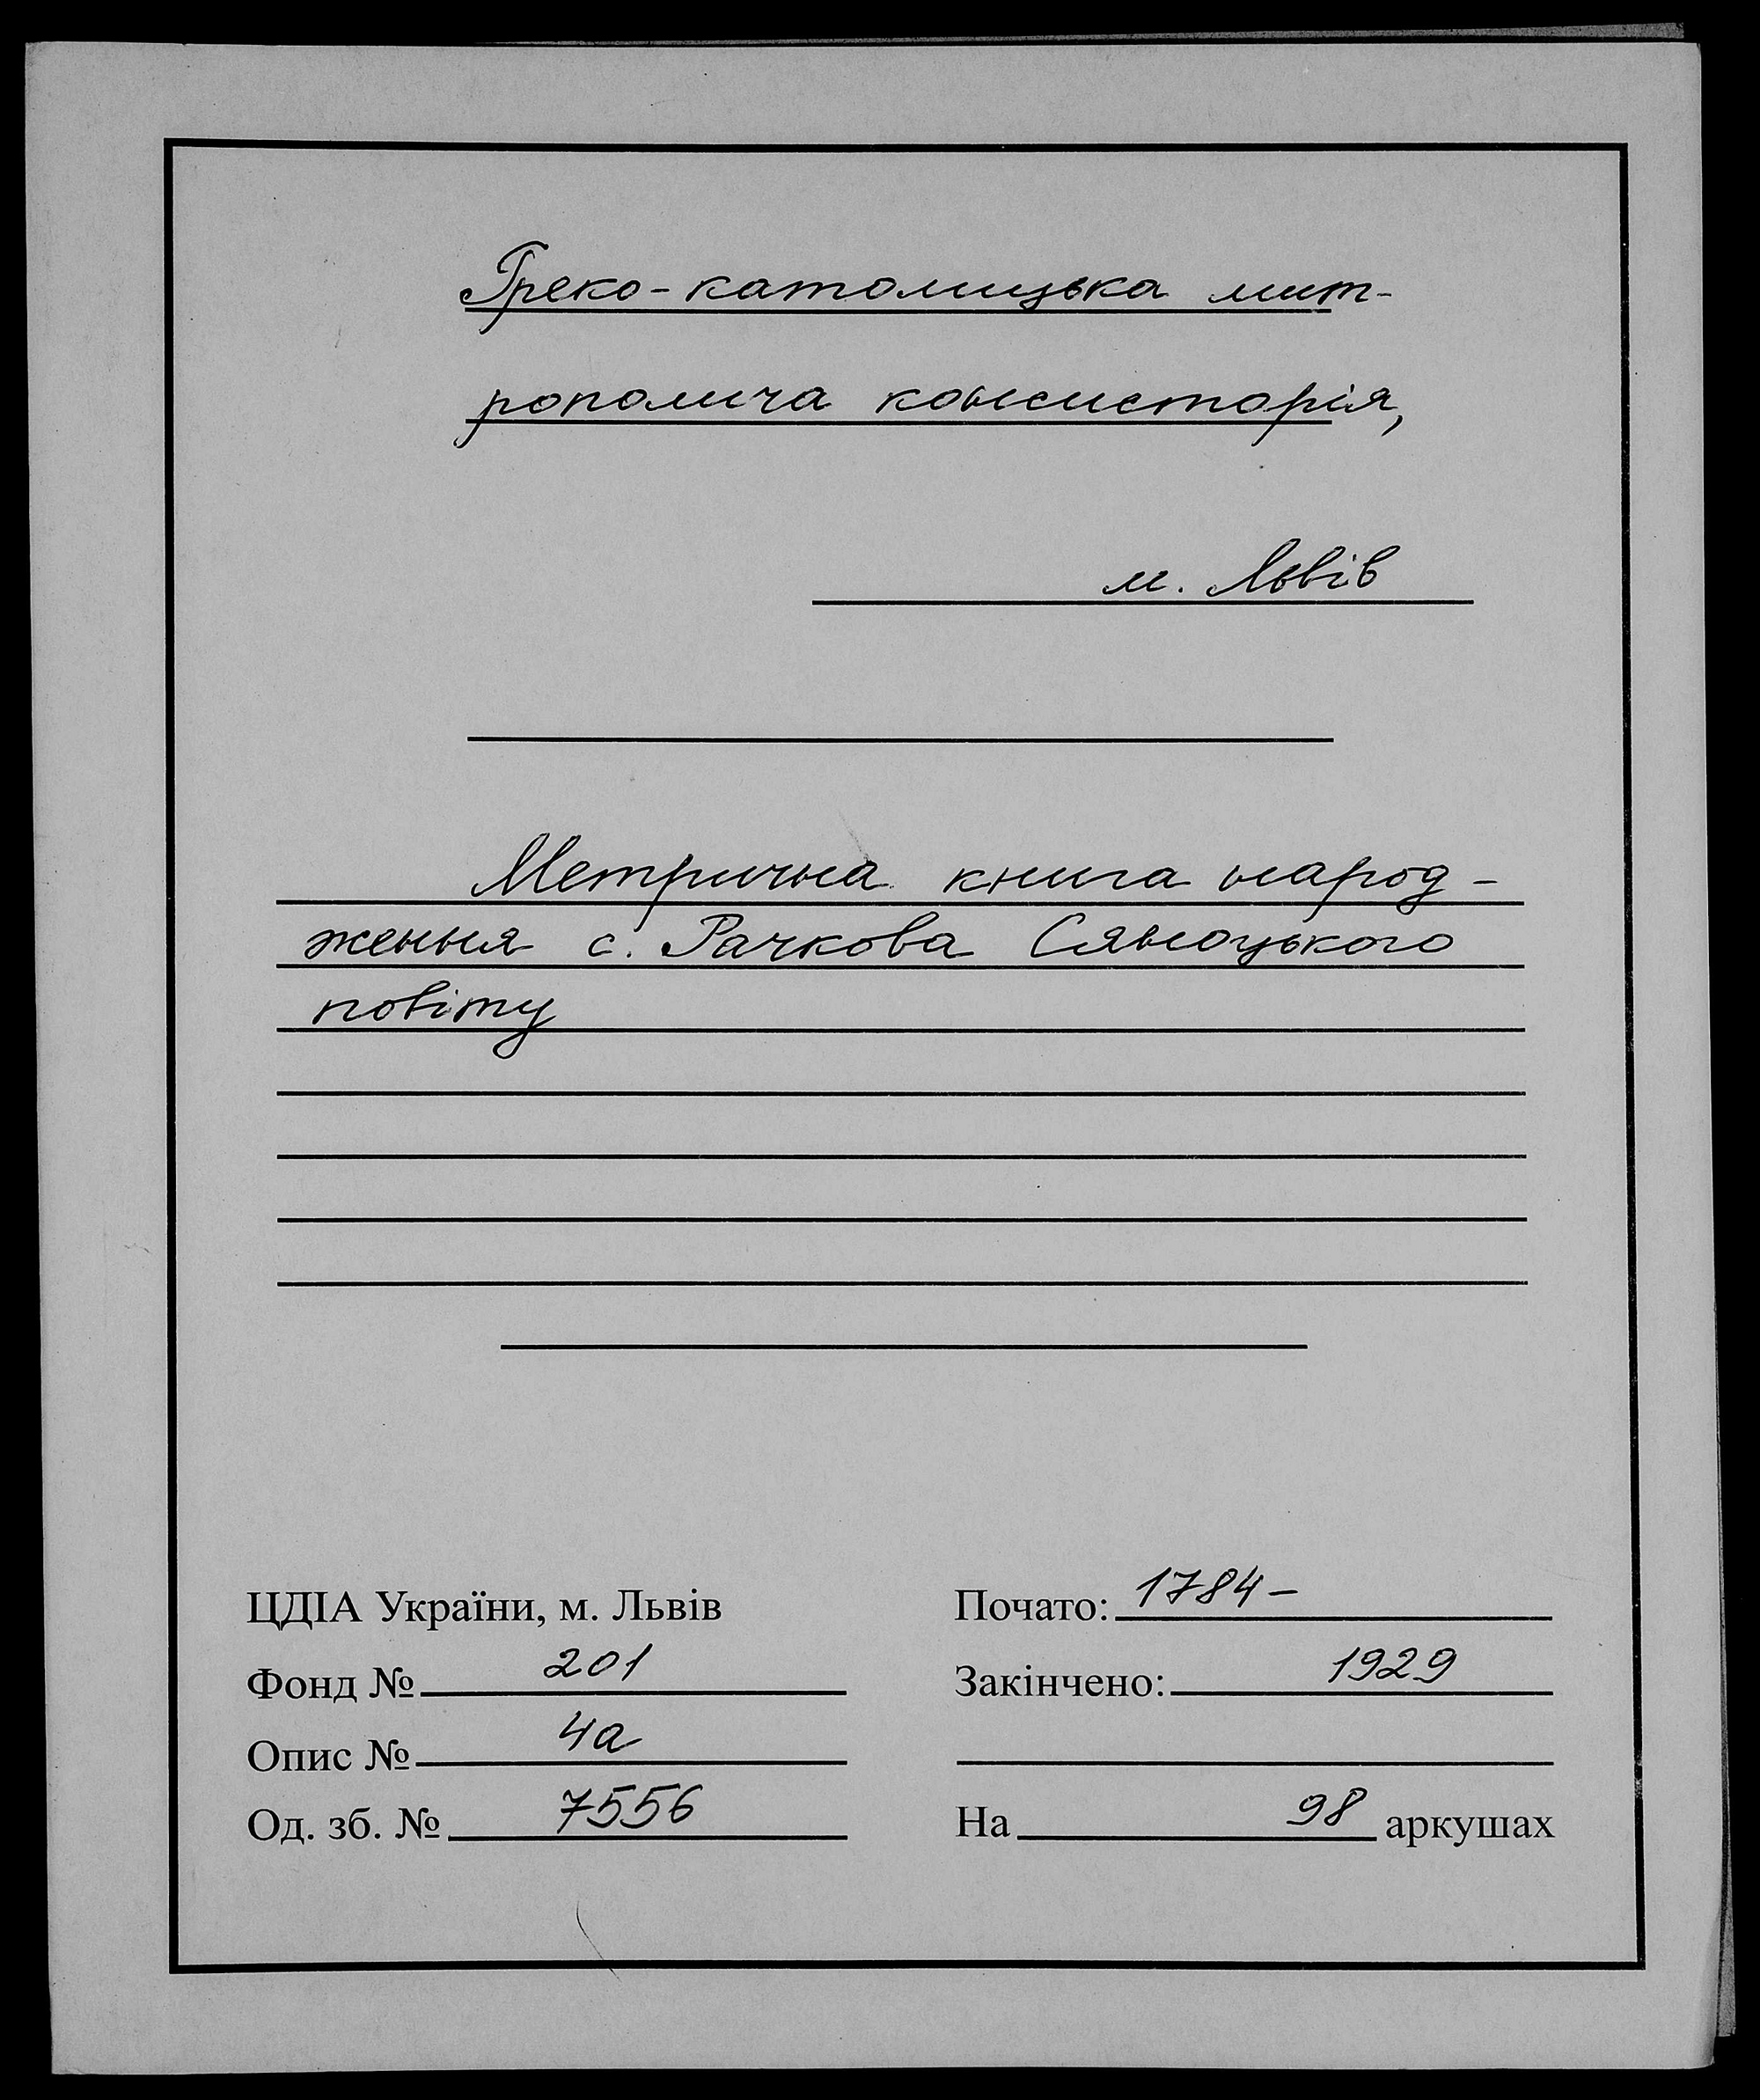 Греко-католицька мит-
рополича консисторія,
м. Львів
Метрична книга народ-
ження с. Рачкова Сяноцького
повіту
ЦДІА України, м. Львів
Почато: 1784-
Фонд № 201
Закінчено: 1929
Опис № 4а
Од. зб. № 7556
На 98 аркушах